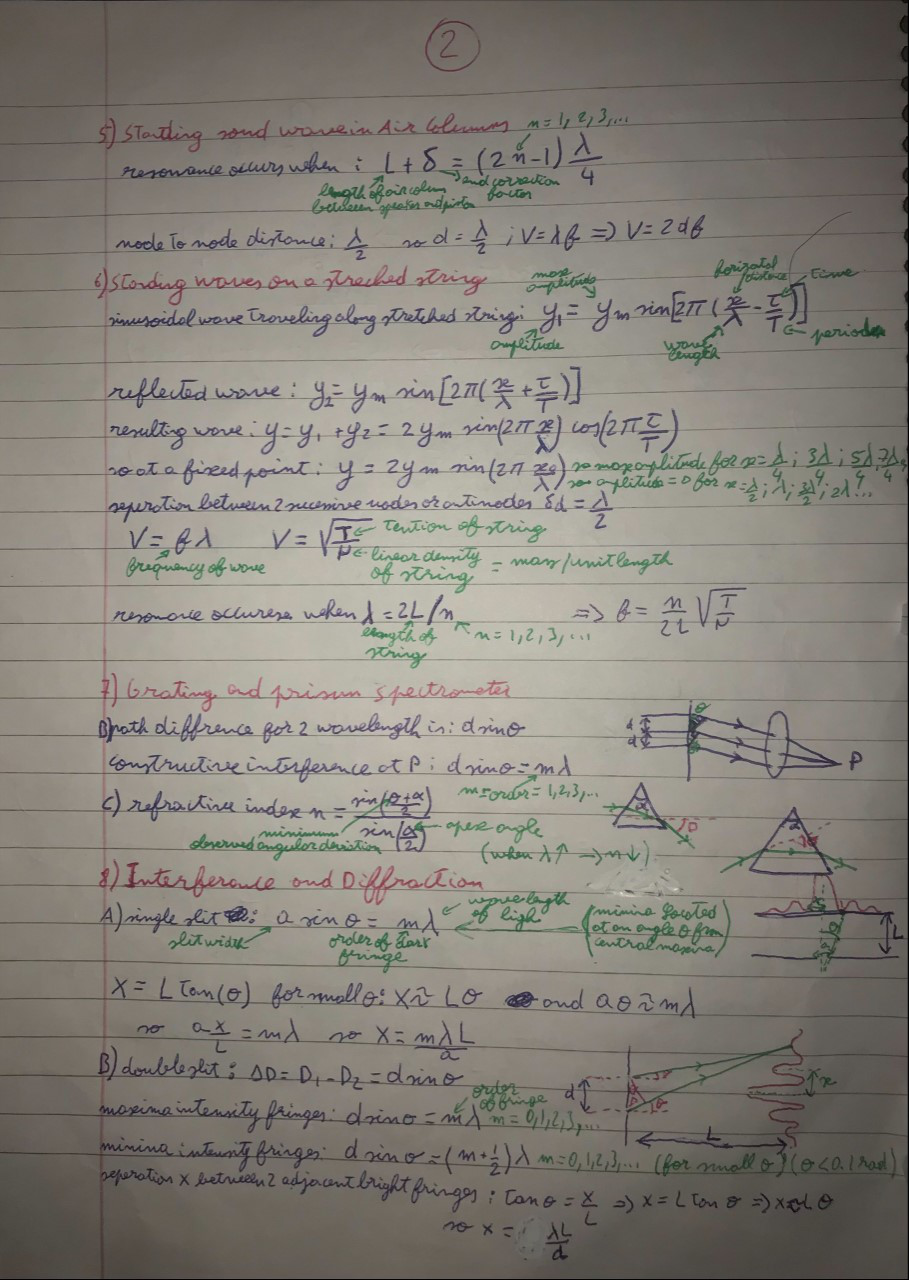 2
5) Standing sound wave in Air Columns n = 1, 2, 3,...
resonance occurs when : L + δ = (2n-1) λ/4
length of air colum between speaker and piston
end correction factor
node to node distance: λ/2 so d = λ/2 ; V = λf => V = 2df
6) Standing waves on a streched string
max amplitude
horizontal distance
time
sinusoidal wave traveling along stretched string: y₁ = yₘ sin[2π(x/λ - t/T)]
amplitude
wave length
period
reflected wave : y₂ = yₘ sin[2π(x/λ + t/T)]
resulting wave: y = y₁ + y₂ = 2yₘ sin(2π x/λ) cos(2π t/T)
so at a fixed point : y = 2yₘ sin(2π x₀/λ) so max amplitude for x = λ/4 ; 3λ/4 ; 5λ/4 ; 7λ/4
so amplitude = 0 for x = λ/2 ; λ ; 3λ/2 ; 2λ ...
seperation between 2 sucessive nodes or antinodes δd = λ/2
V = fλ V = √(T/μ) tention of string
frequency of wave
linear density of string = mass/unit length
resonance occures when λ = 2L/n => f = n/2L √(T/μ)
length of string
n = 1, 2, 3, ...
7) Grating and prism spectrometer
B) path diffrence for 2 wavelength is: d sinθ
d
d
θ
P
constructive interference at P : d sinθ = mλ
m = order = 1,2,3,...
C) refractive index n = sin((θ+α)/2) / sin(α/2)
minimum observed angular deviation
apex angle
(when λ↑ → n↓)
α
D
α
8) Interference and Diffraction
A) single slit : a sin θ = mλ
slit width
order of dark fringe
wave length of ligh
(minima located at an angle θ from central maxima)
L
X = L Tan(θ) for small θ: X ≈ Lθ and aθ ≈ mλ
so a x/L = mλ so X = mλL/a
B) double slit : ΔD = D₁ - D₂ = d sinθ
d
θ
x
L
maxima intensity fringes: d sinθ = mλ m = 0,1,2,3,...
order of fringe
minima intensity fringes: d sinθ = (m + 1/2) λ m = 0,1,2,3,... (for small θ) (θ < 0.1 rad)
seperation x between 2 adjacent bright fringes : Tan θ = x/L => x = L Tan θ => x ≈ Lθ
so x = λL/d